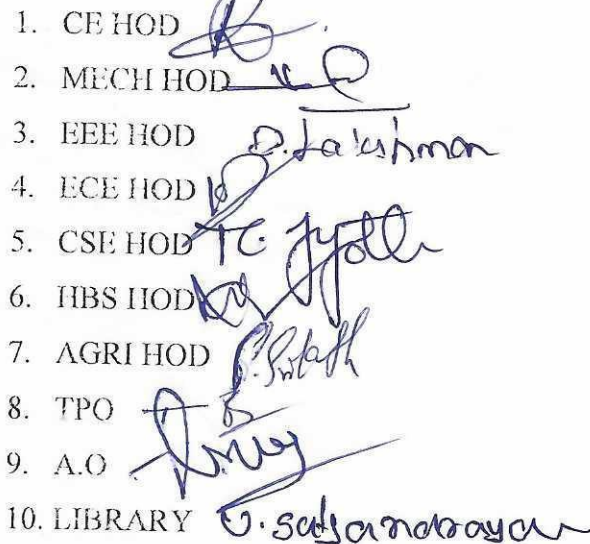 1. CE HOD
2. MECH HOD
3. EEE HOD D. Lakshman
4. ECE HOD
5. CSE HOD K. Jyothi
6. HBS HOD
7. AGRI HOD
8. TPO
9. A.O
10. LIBRARY U. Satyanarayan